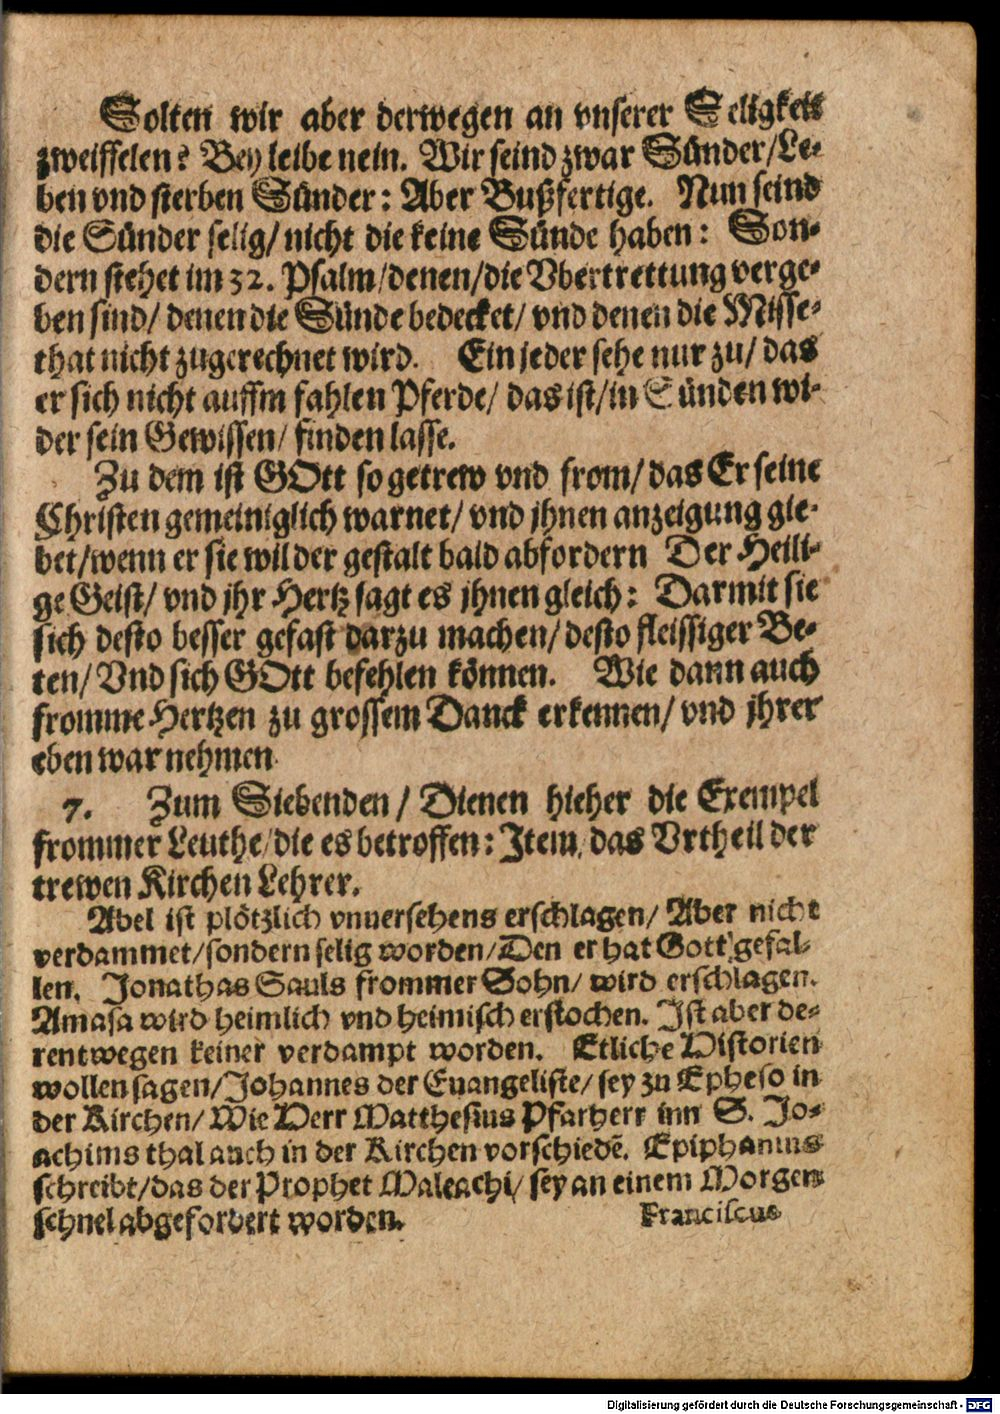 Solten wir aber derwegen an vnserer Seligkeit
zweiffelen? Bey leibe nein. Wir seind zwar Sünder/Le-
ben vnd sterben Sünder: Aber Bußfertige. Nun seind
die Sünder selig/ nicht die keine Sünde haben: Son-
dern stehet im 32. Psalm/denen/die Vbertrettung verge-
ben sind/ denen die Sünde bedecket/ vnd denen die Misse-
that nicht zugerechnet wird. Ein jeder sehe nur zu/ das
er sich nicht auffm fahlen Pferde/ das ist/in Sünden wi-
der sein Gewissen/ finden lasse.
Zu dem ist GOtt so getrew vnd from/ das Er seine
Christen gemeiniglich warnet/ vnd jhnen anzeigung gie-
bet/wenn er sie wil der gestalt bald abfordern Der Heili-
ge Geist/ vnd jhr Hertz sagt es jhnen gleich: Darmit sie
sich desto besser gefast darzu machen/ desto fleissiger Be-
ten/ Vnd sich GOtt befehlen können. Wie dann auch
fromme Hertzen zu grossem Danck erkennen/ vnd jhrer
eben war nehmen.
7. Zum Siebenden / Dienen hieher die Exempel
frommer Leuthe/die es betroffen: Item/ das Vrtheil der
trewen Kirchen Lehrer.
Abel ist plötzlich vnuersehens erschlagen/ Aber nicht
verdammet/sondern selig worden/Den er hat Gott gefal-
len. Jonathas Sauls frommer Sohn/ wird erschlagen.
Amasa wird heimlich vnd heimisch erstochen. Ist aber de-
rentwegen keiner verdampt worden. Etliche Historien
wollen sagen/Johannes der Euangeliste/ sey zu Epheso in
der Kirchen/ Wie Herr Matthesius Pfarherr inn S. Jo-
achims thal auch in der Kirchen vorschiedē. Epiphanius
schreibt/das der Prophet Maleachi/ sey an einem Morgen
schnel abgefordert worden.
Franciscus
Digitalisierung gefördert durch die Deutsche Forschungsgemeinschaft - DFG